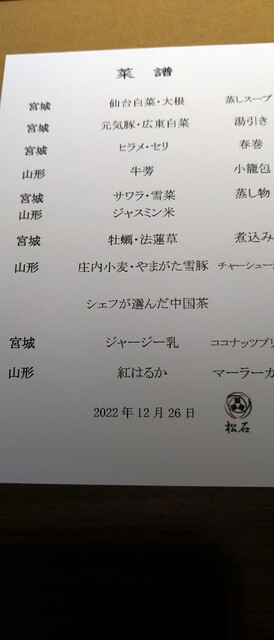 菜譜
宮城 仙台白菜・大根 蒸しスープ
宮城 元気豚・広東白菜 湯引き
宮城 ヒラメ・セリ 春巻
山形 牛蒡 小籠包
宮城 サワラ・雪菜 蒸し物
山形 ジャスミン米
宮城 牡蠣・法蓮草 煮込み
山形 庄内小麦・やまがた雪豚 チャーシュー
シェフが選んだ中国茶
宮城 ジャージー乳 ココナッツプリ
山形 紅はるか マーラーカ
2022年12月26日
松石